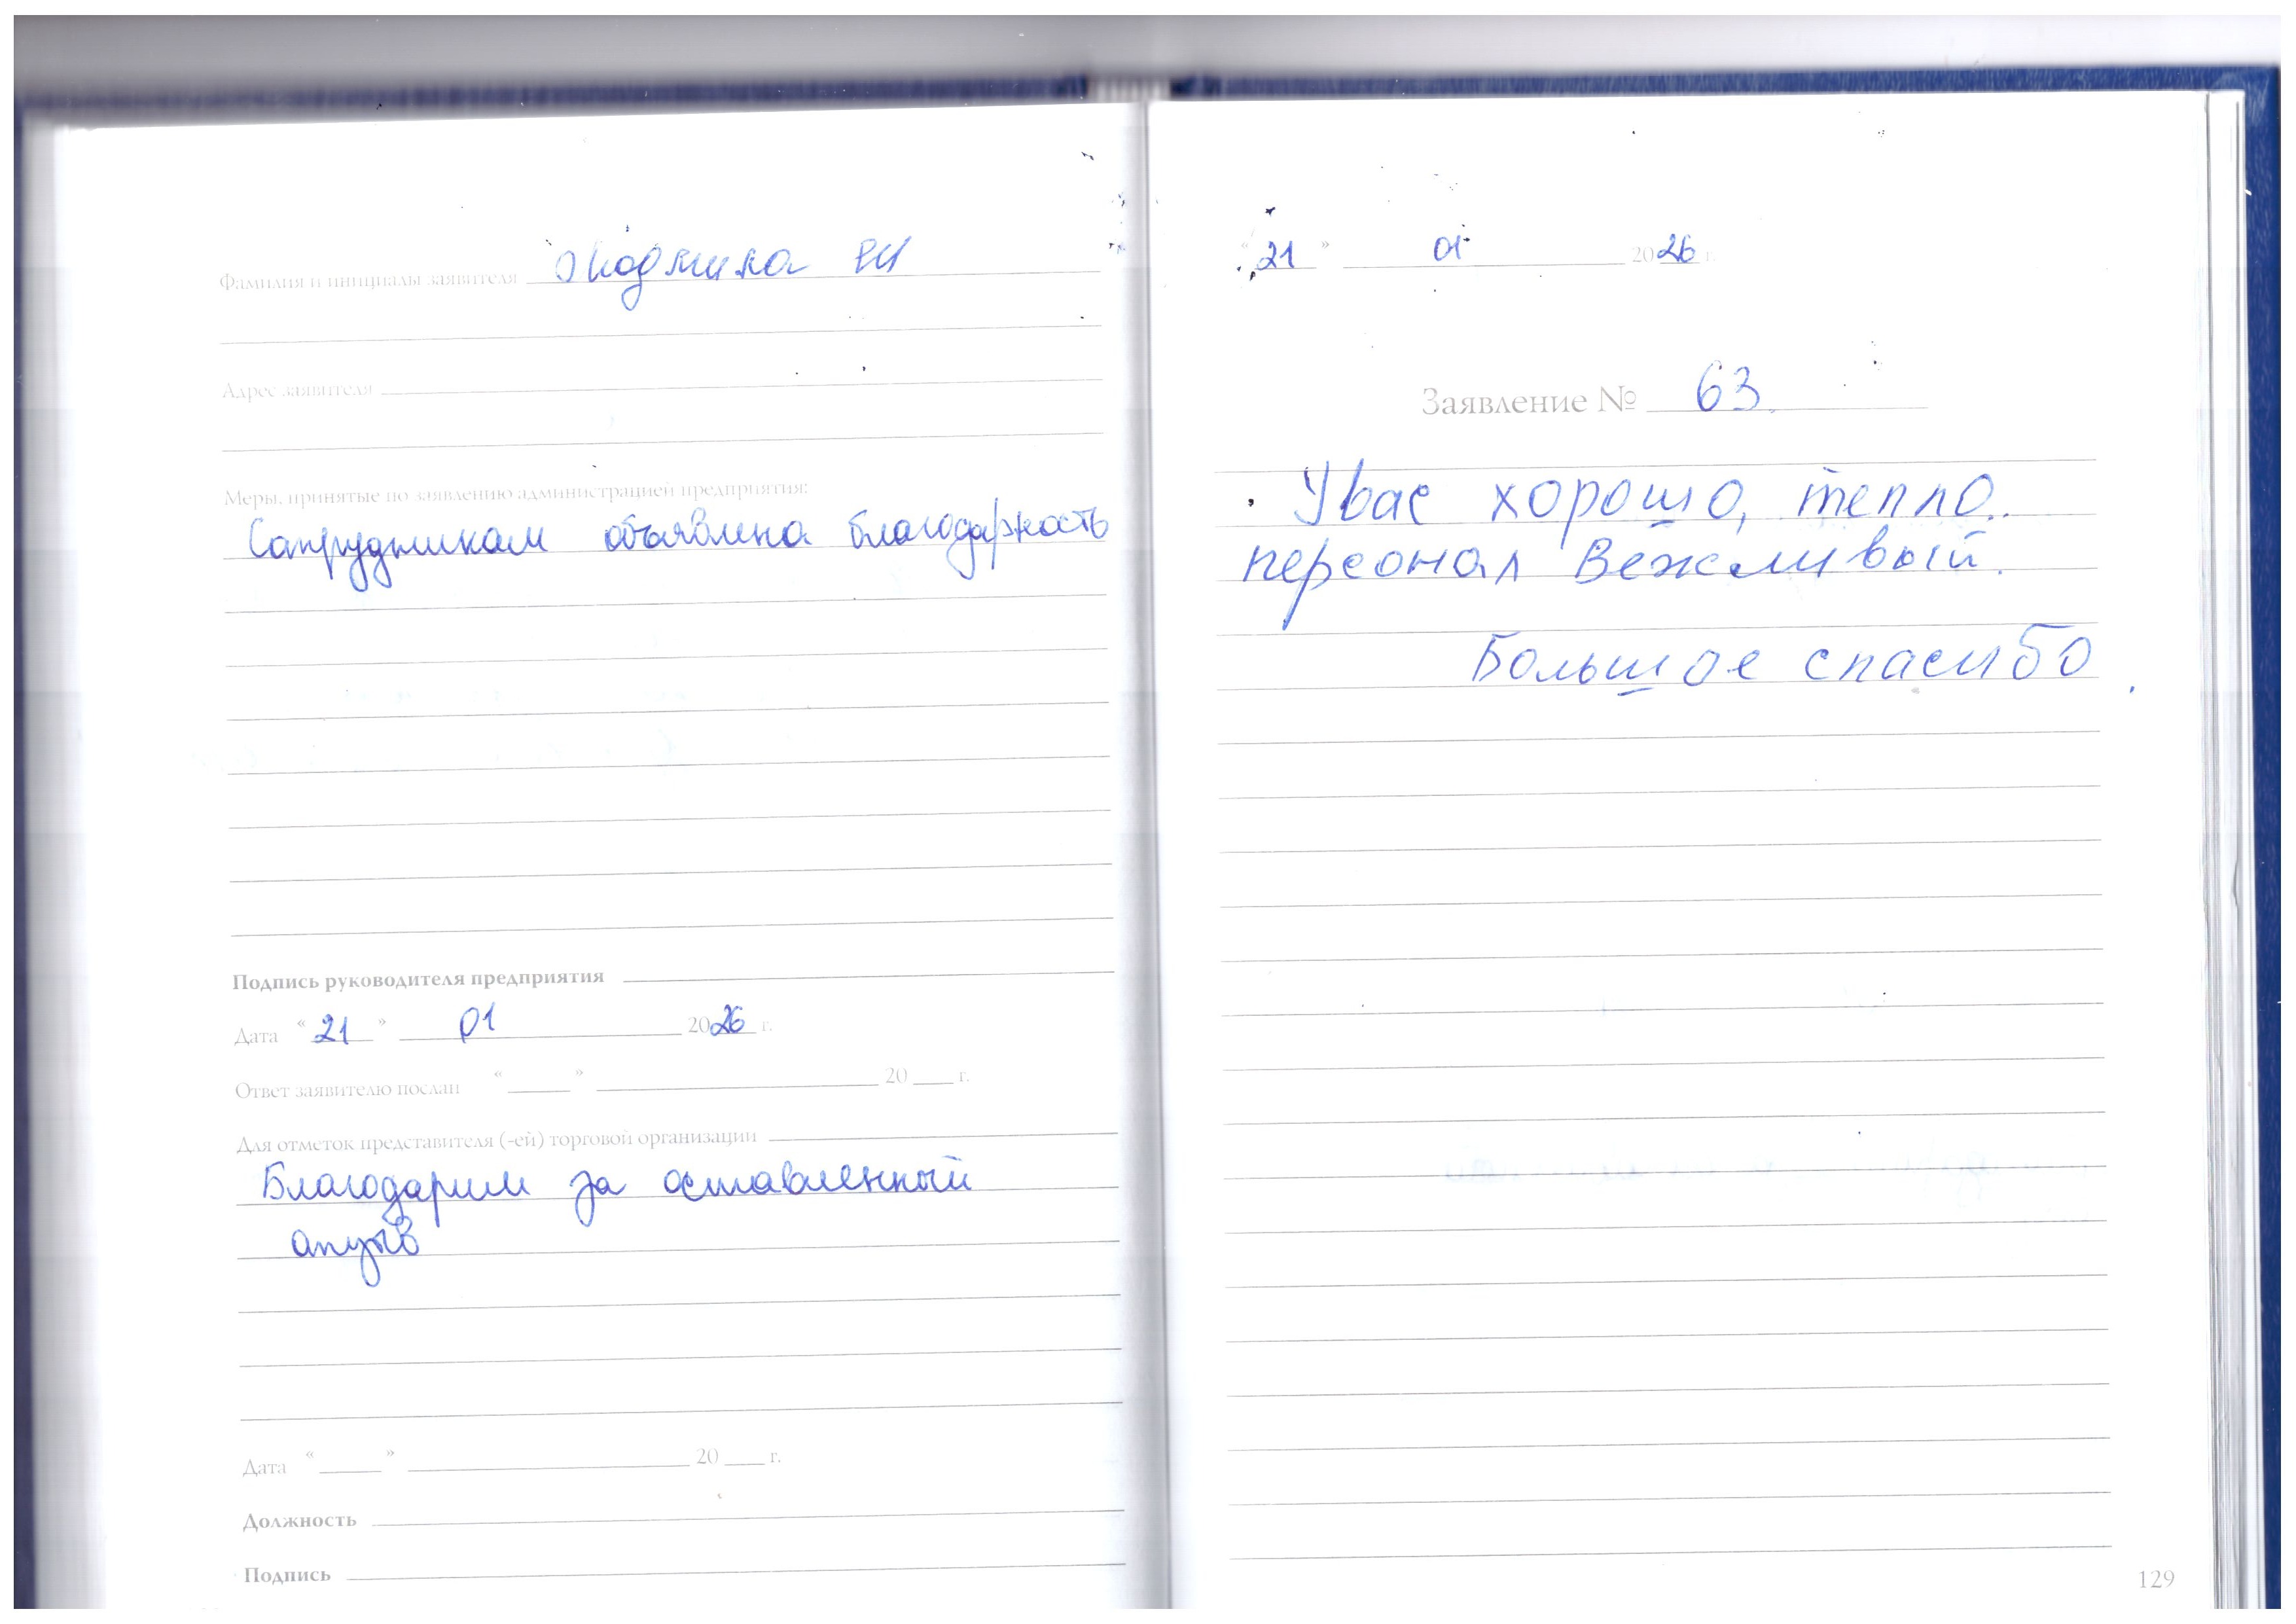 Фамилия и инициалы заявителя Людмила ЕИ
Адрес заявителя
Меры, принятые по заявлению администрацией предприятия:
Сотрудникам объявлена благодарность
Подпись руководителя предприятия
Дата « 21 » 01 2026 г.
Ответ заявителю послан « » 20 г.
Для отметок представителя (-ей) торговой организации
Благодарим за оставленный
отзыв
Дата « » 20 г.
Должность
Подпись
« 21 » 01 2026 г.
Заявление № 63.
Увас хорошо, тепло.
персонал Вежливый.
Большое спасибо.
129